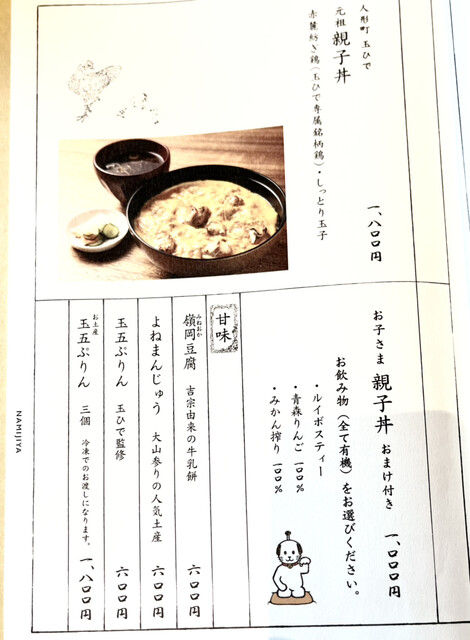 人形町 玉ひで
元祖 親子丼
赤麓紡ぎ鶏(玉ひで専属銘柄鶏)・しっとり玉子
一、八〇〇円
お子さま 親子丼 おまけ付き 一、〇〇〇円
お飲み物(全て有機)をお選びください。
・ルイボスティー
・青森りんご 一〇〇%
・みかん搾り 一〇〇%
甘味
嶺岡豆腐 吉宗由来の牛乳餅 六〇〇円
みねおか
よねまんじゅう 大山参りの人気土産 六〇〇円
玉五ぷりん 玉ひで監修 六〇〇円
お土産
玉五ぷりん 三個 冷凍でのお渡しになります。 一、八〇〇円
NAMIJIYA